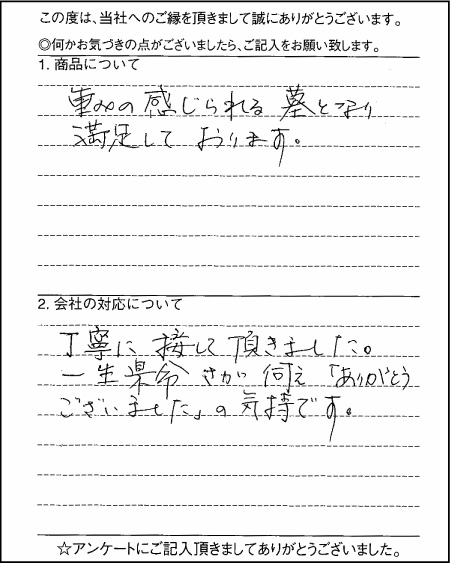 この度は、当社へのご縁を頂きまして誠にありがとうございます。
◎何かお気づきの点がございましたら、ご記入をお願い致します。
1. 商品について
重みの感じられる墓となり
満足しております。
2. 会社の対応について
丁寧に接して頂きました。
一生県命さが伺え「ありがとう
ございました」の気持です。
☆アンケートにご記入頂きましてありがとうございました。